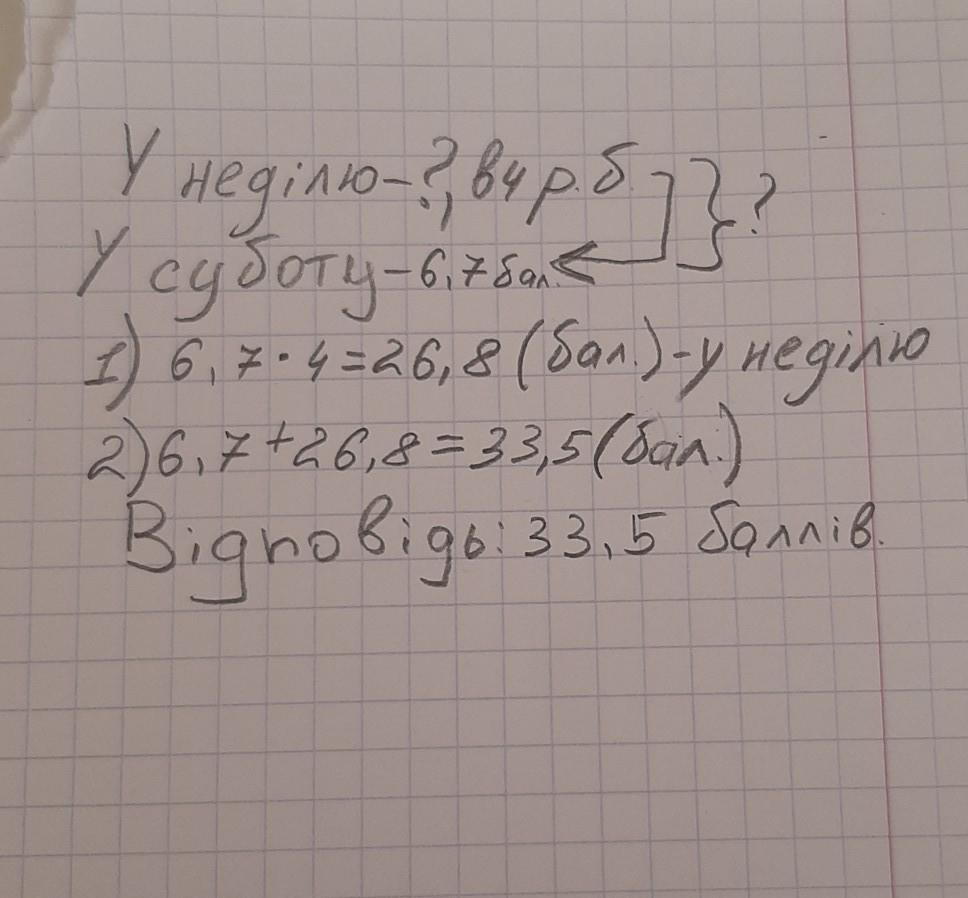 У неділю-?, в 4 р. б. } ?
У суботу-6,7 бал.
1) 6,7·4=26,8 (бал.)-у неділю
2) 6,7+26,8=33,5 (бал.)
Відповідь: 33,5 баллів.